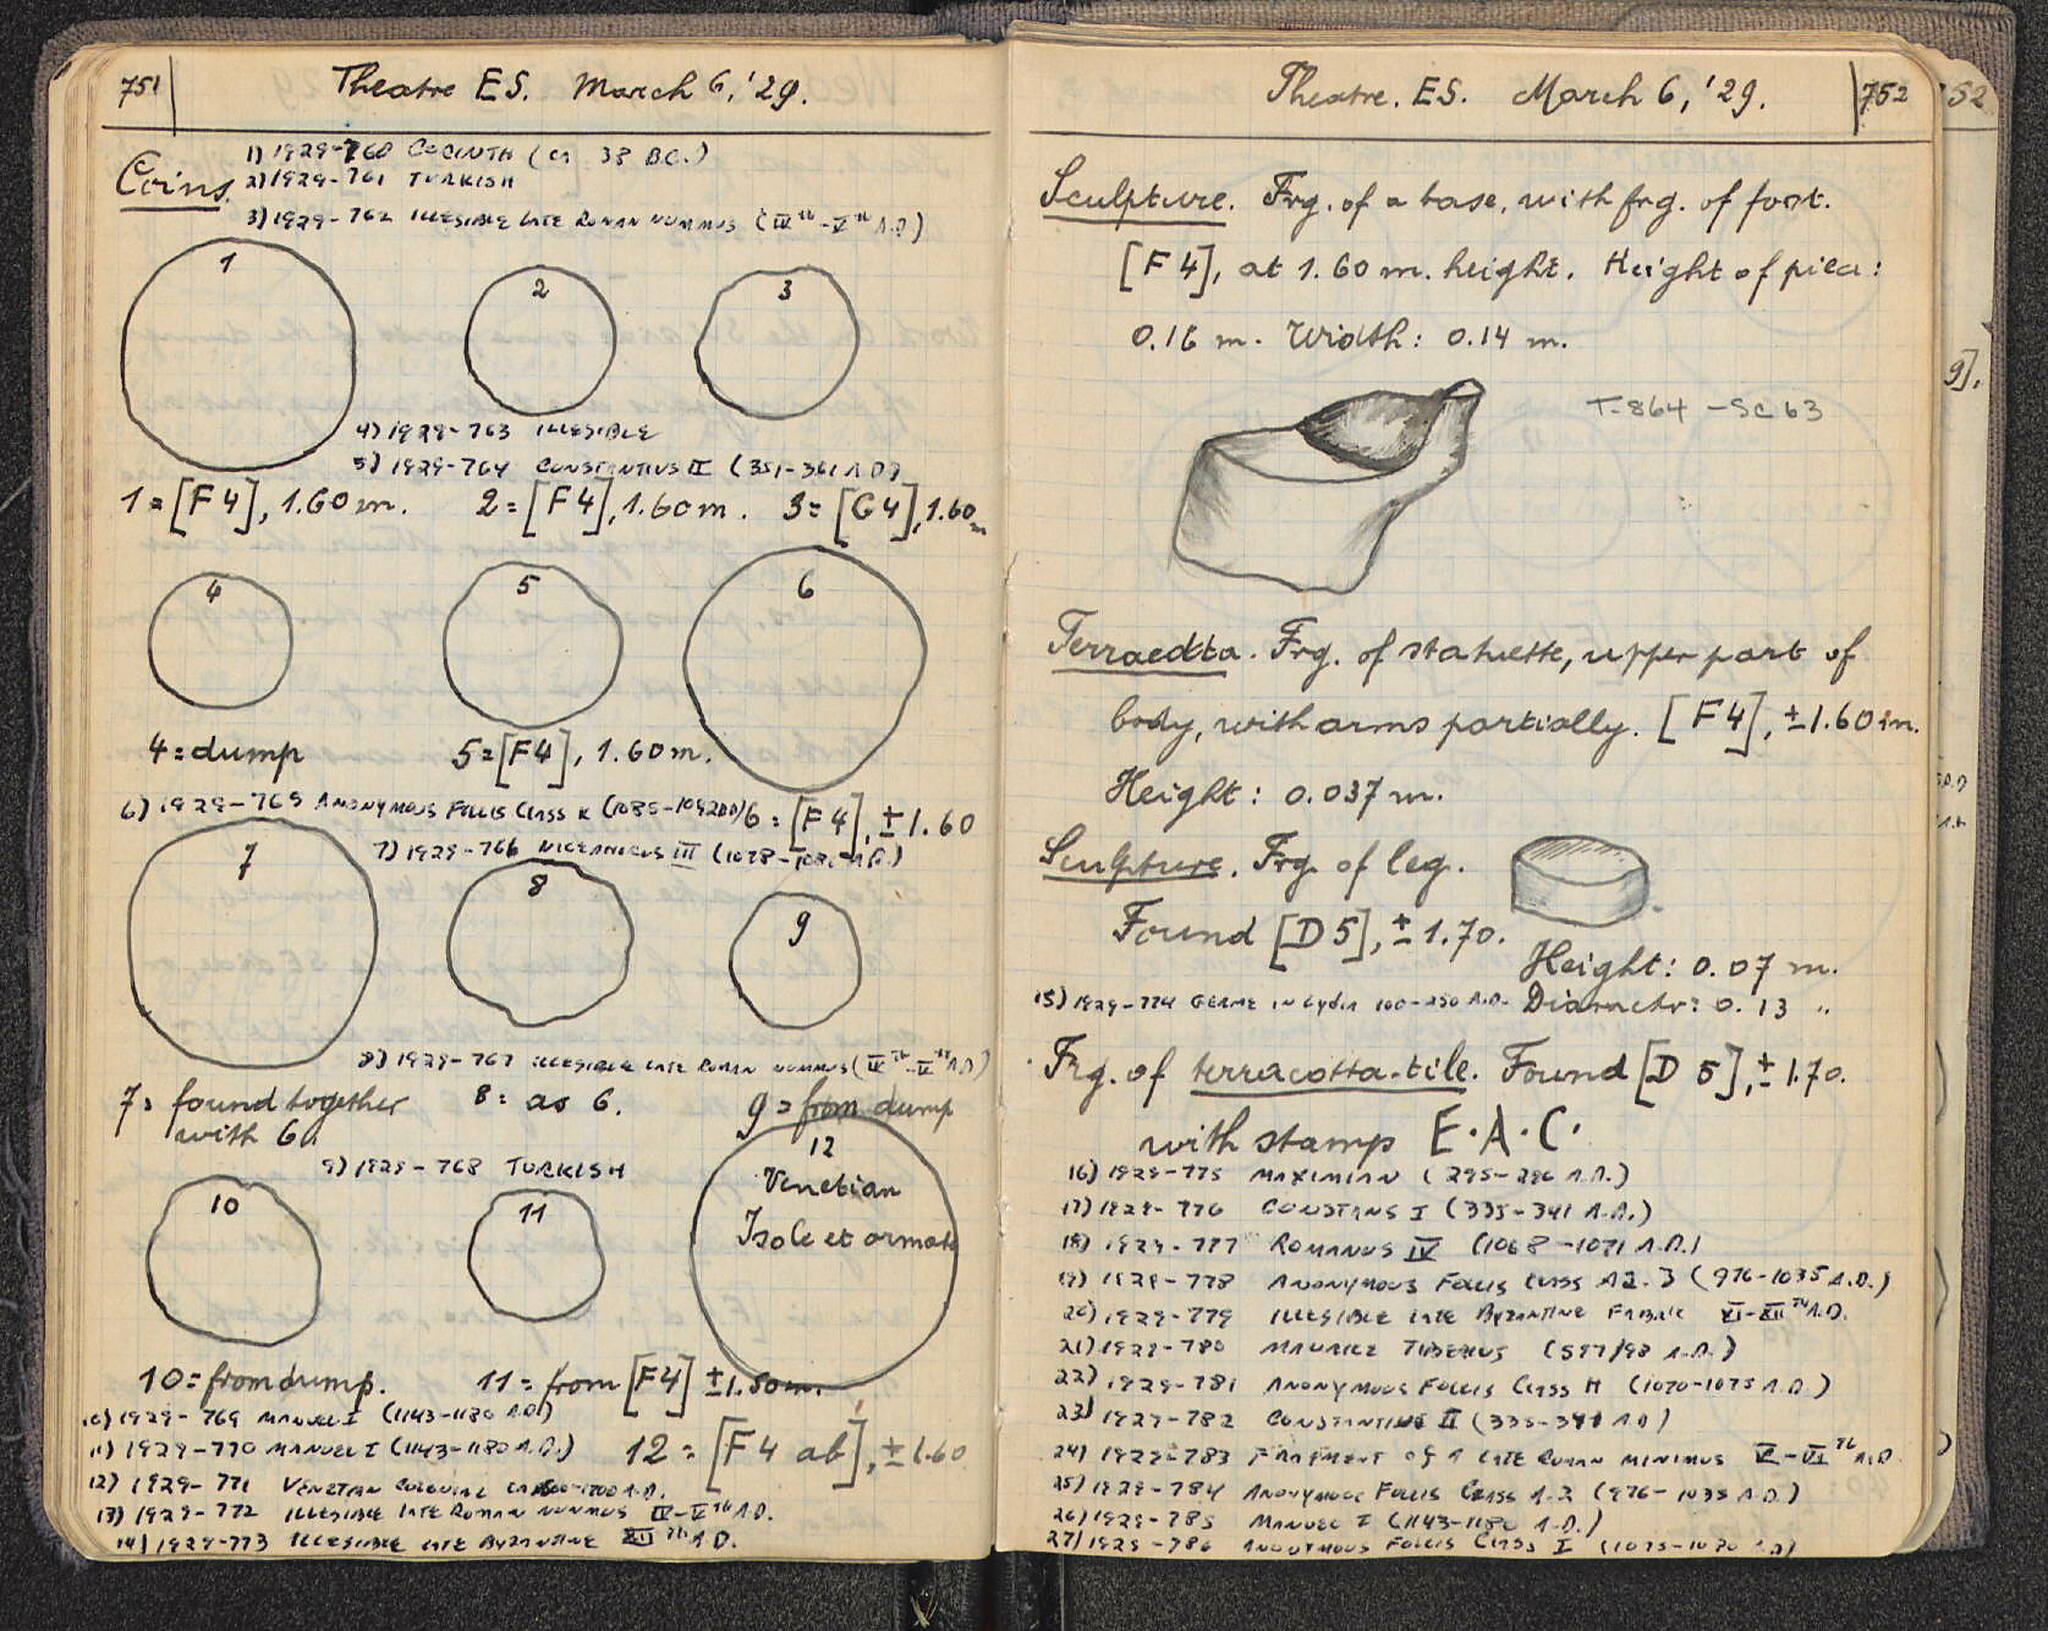 751
Theatre ES. March 6, '29.
Coins.
1) 1929-760 CORINTH (CA 38 B.C.)
2) 1929-761 TURKISH
3) 1929-762 ILLEGIBLE LATE ROMAN NUMMUS (IVth-Vth A.D)
1
2
3
4) 1929-763 ILLEGIBLE
5) 1929-764 CONSTANTIUS II (351-361 A.D)
1=[F4], 1.60 m. 2=[F4], 1.60 m. 3=[G4], 1.60 m
4
5
6
4=dump 5=[F4], 1.60 m.
6) 1929-765 ANONYMOUS FOLLIS CLASS K (1085-1092 AD)
6=[F4], ±1.60
7) 1929-766 NICEPHORUS III (1078-1081 A.D.)
7
8
9
8) 1929-767 ILLEGIBLE LATE ROMAN NUMMUS (IVth-Vth A.D)
7= found together with 6. 8= as 6. 9= from dump
9) 1929-768 TURKISH
10
11
12
Venetian
Isole et armata
10=from dump. 11=from [F4] ±1.50 m.
10) 1929-769 MANUEL I (1143-1180 A.D)
11) 1929-770 MANUEL I (1143-1180 A.D.)
12 = [F4 ab], ±1.60
12) 1929-771 VENETIAN COLONIAL A.D.
13) 1929-772 ILLEGIBLE LATE ROMAN NUMMUS IV-Vth A.D.
14) 1929-773 ILLEGIBLE LATE BYZANTINE XIIth A.D.
Theatre. ES. March 6, '29.
752
Sculpture. Frg. of a base, with frg. of foot.
[F4], at 1.60 m. height. Height of piece:
0.16 m. Width: 0.14 m.
T-864 - SC 63
Terracotta. Frg. of statuette, upper part of
body, with arms partially. [F4], ±1.60 m.
Height: 0.037 m.
Sculpture. Frg. of leg.
Found [D5], ±1.70.
Height: 0.07 m.
15) 1929-774 GERME IN Lydia 100-250 A.D.
Diameter: 0.13 "
Frg. of terracotta-tile. Found [D 5], ±1.70.
with stamp E·A·C·
16) 1929-775 MAXIMIAN (295-296 A.D.)
17) 1929-776 CONSTANS I (335-341 A.D.)
18) 1929-777 ROMANUS IV (1068-1071 A.D.)
19) 1929-778 ANONYMOUS FOLLIS CLASS A2.3 (976-1035 A.D.)
20) 1929-779 ILLEGIBLE LATE BYZANTINE FABRIC XI-XIIth A.D.
21) 1929-780 MAURICE TIBERIUS (597/98 A.D.)
22) 1929-781 ANONYMOUS FOLLIS CLASS H (1070-1075 A.D.)
23) 1929-782 CONSTANTINE II (335-341 A.D)
24) 1929-783 FRAGMENT OF A LATE ROMAN MINIMUS V-VIth A.D
25) 1929-784 ANONYMOUS FOLLIS CLASS A-2 (976-1035 A.D.)
26) 1929-785 MANUEL I (1143-1180 A.D.)
27) 1929-786 ANONYMOUS FOLLIS CLASS I (1075-1080 A.D)
52
9].